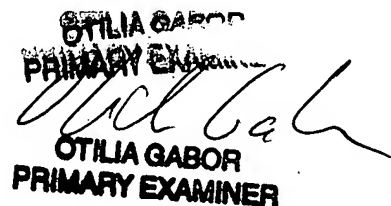 OTILIA GABOR
PRIMARY
OTILIA GABOR
PRIMARY EXAMINER